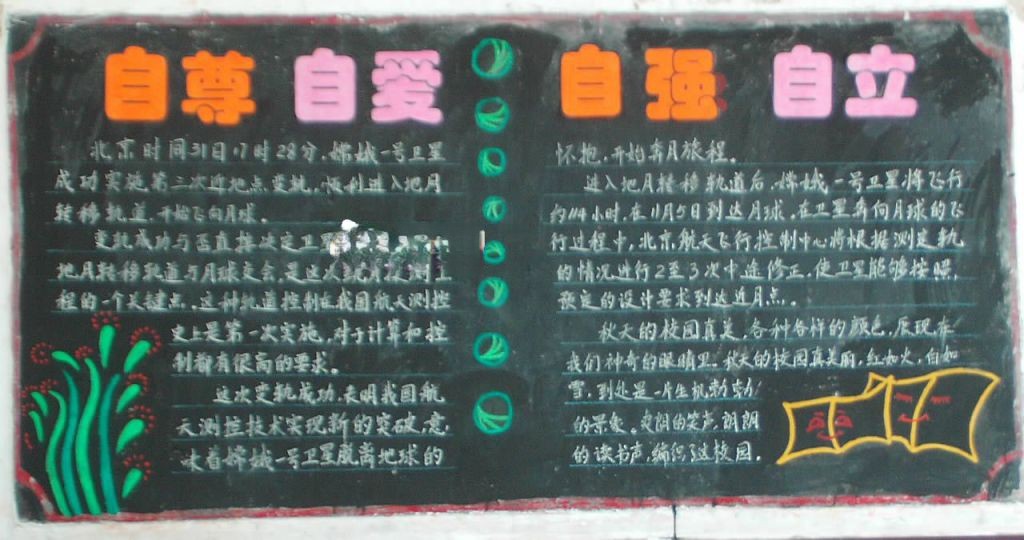 自尊 自爱 自强 自立
北京时间31日17时28分,嫦娥一号卫星
成功实施第三次近地点变轨,顺利进入地月
转移轨道,开始飞向月球。
变轨成功与否直接决定卫
地月转移轨道与月球交会,是这次
程的一个关键点,这种轨道控制在我国航天测控
史上是第一次实施,对于计算和控
制都有很高的要求。
这次变轨成功,表明我国航
天测控技术实现新的突破,意
味着嫦娥一号卫星脱离地球的
怀抱,开始奔月旅程。
进入地月转移轨道后,嫦娥一号卫星将飞行
约114小时,在11月5日到达月球。在卫星奔向月球的飞
行过程中,北京航天飞行控制中心将根据测定轨
的情况进行2至3次中途修正,使卫星能够按照
预定的设计要求到达近月点。
秋天的校园真美,各种各样的颜色,展现在
我们神奇的眼睛里。秋天的校园真美丽,红如火,白如
雪,到处是一片生机勃勃
的景象。爽朗的笑声,朗朗
的读书声,编织了这校园。